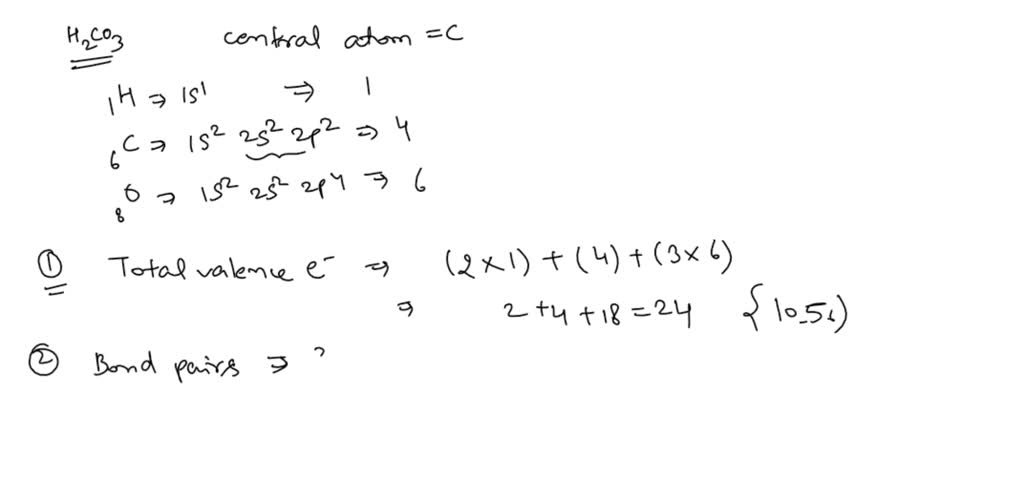 H₂CO₃ central atom = C
₁H ⇒ 1s¹ ⇒ 1
₆C ⇒ 1s² 2s² 2p² ⇒ 4
₈O ⇒ 1s² 2s² 2p⁴ ⇒ 6
① Total valence e⁻ ⇒ (2×1) + (4) + (3×6)
⇒ 2+4+18=24
② Bond pairs ⇒